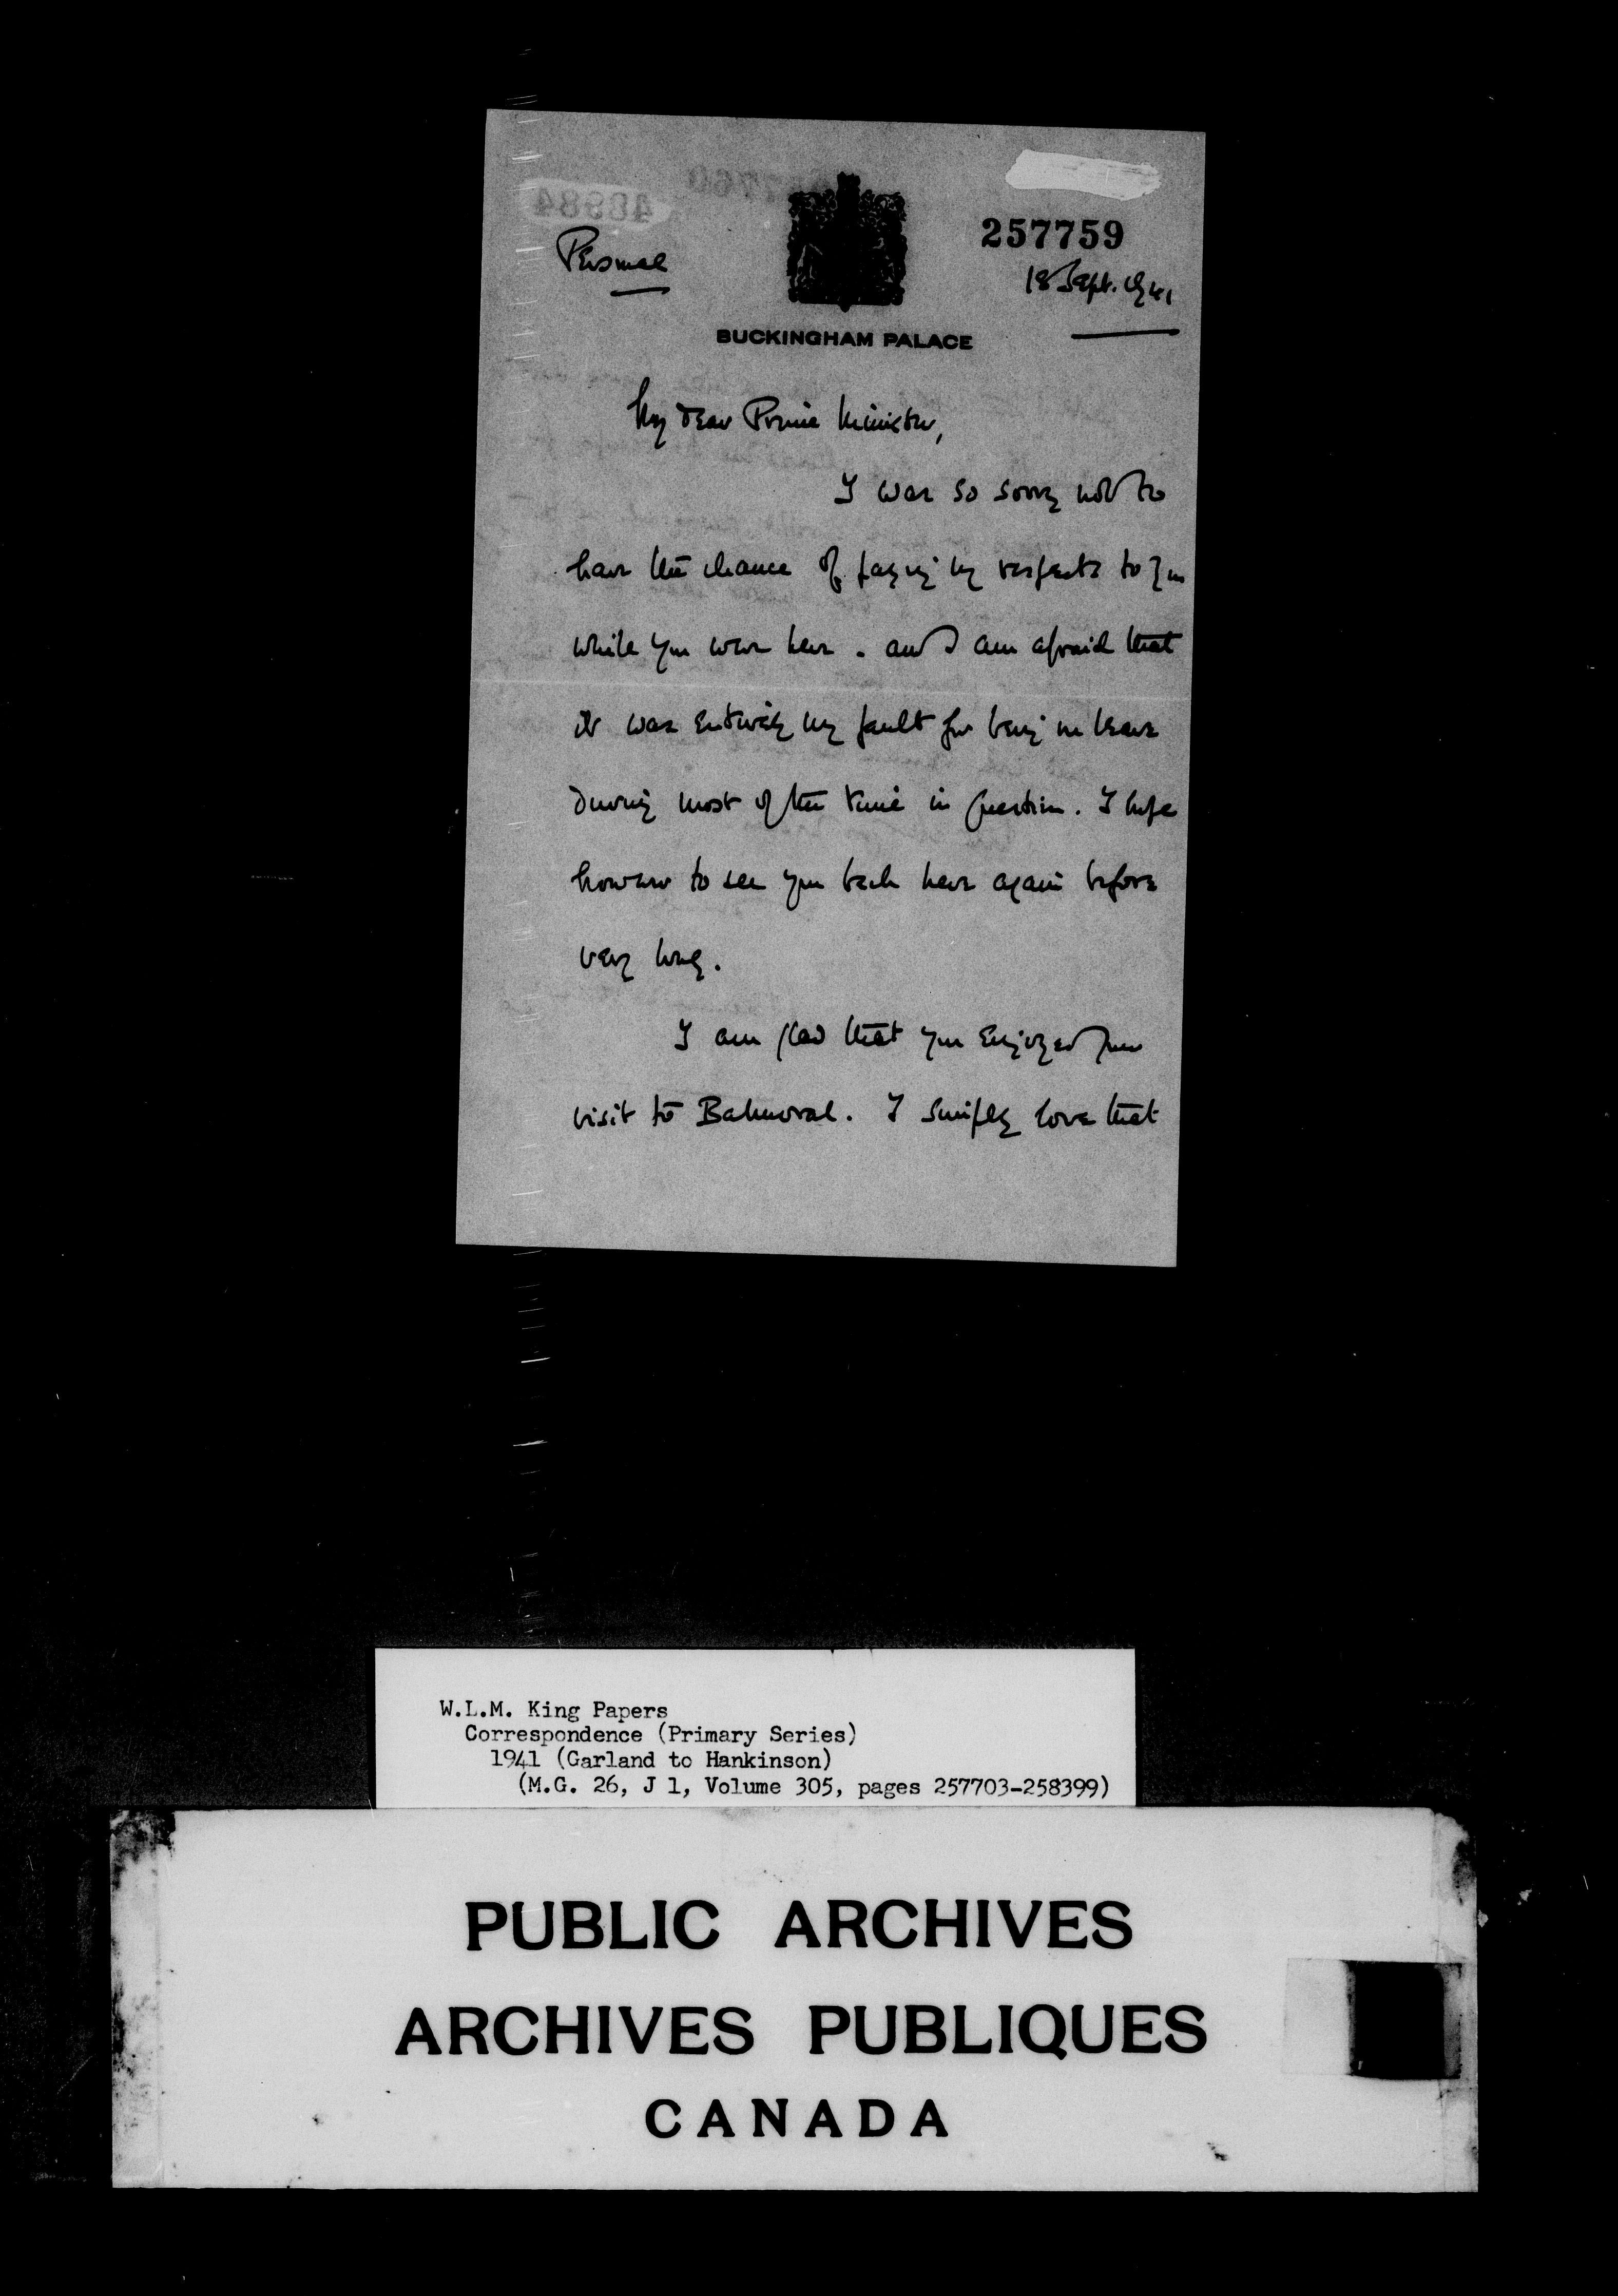 48984
257760
257759
Personal
18 Sept. 1941
BUCKINGHAM PALACE
My dear Prime Minister,
I was so sorry not to
have the chance of paying my respects to you
while you were here - and I am afraid that
it was entirely my fault for being on leave
during most of the time in question. I hope
however to see you back here again before
very long.
I am glad that you enjoyed your
visit to Balmoral. I simply love that
W.L.M. King Papers
Correspondence (Primary Series)
1941 (Garland to Hankinson)
(M.G. 26, J 1, Volume 305, pages 257703-258399)
PUBLIC ARCHIVES
ARCHIVES PUBLIQUES
CANADA